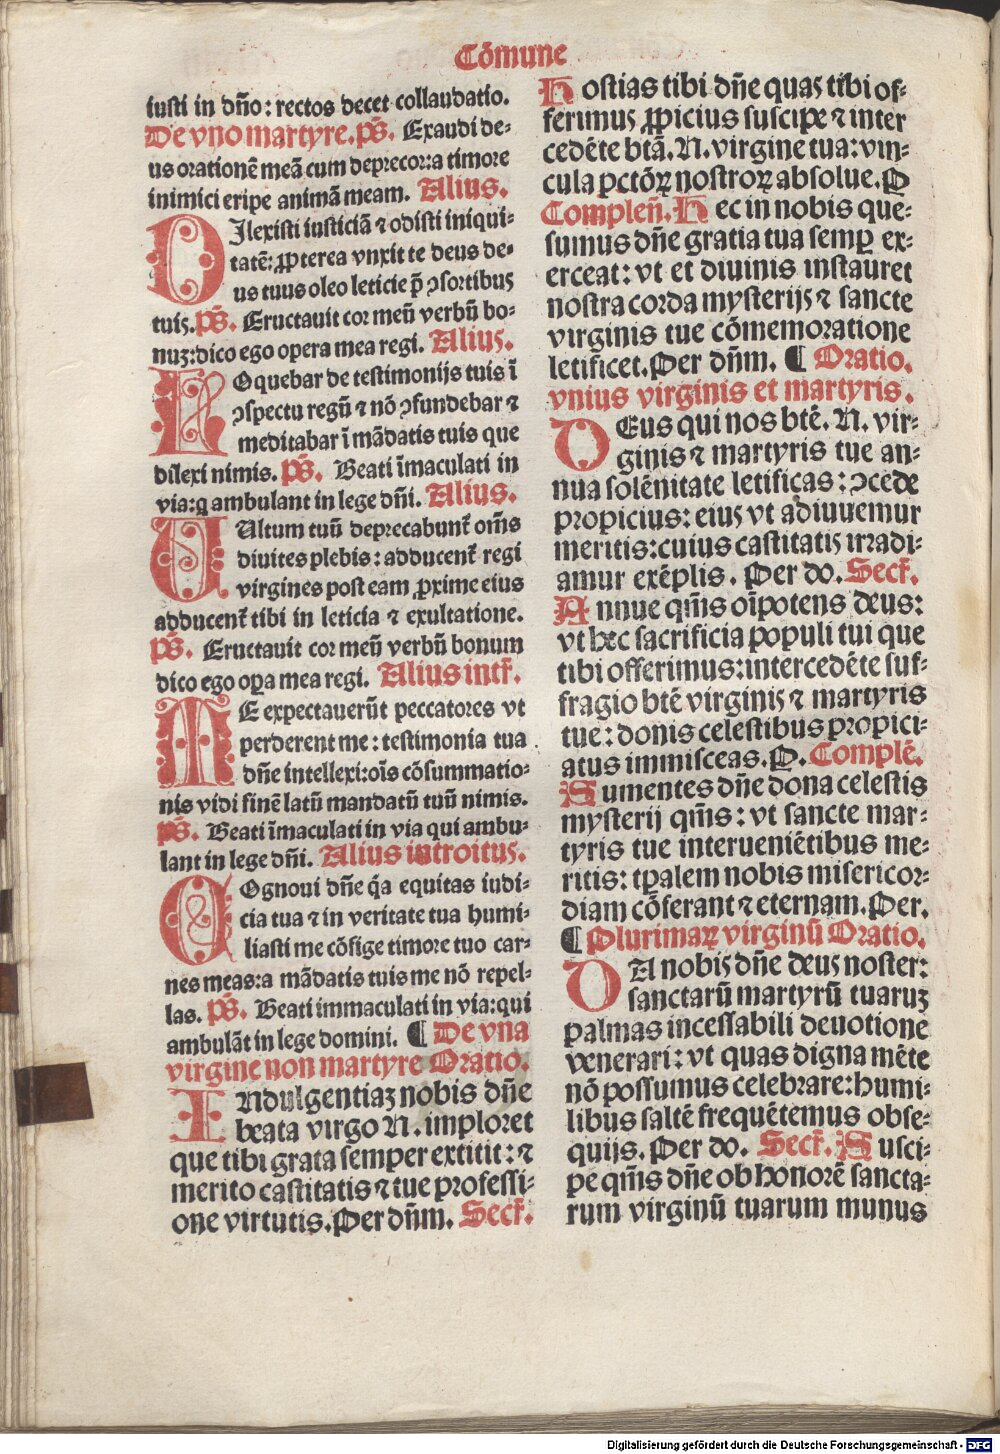 Cōmune
iusti in dño: rectos decet collaudatio.
De vno martyre. ps̄. Exaudi de-
us orationē meā cum deprecor: a timore
inimici eripe animā meam. Alius.
DIlexisti iusticiā ⁊ odisti iniqui-
tatē: ꝓpterea vnxit te deus de-
us tuus oleo leticie p̄ ꝯsortibus
tuis. ps̄. Eructauit cor meū verbū bo-
nuꝫ: dico ego opera mea regi. Alius.
LOquebar de testimonijs tuis ī
ꝯspectu regū ⁊ nō ꝯfundebar ⁊
meditabar ī mādatis tuis que
dilexi nimis. ps̄. Beati īmaculati in
via: q ambulant in lege dñi. Alius.
VUltum tuū deprecabunt̄ om̄s
diuites plebis: adducent̄ regi
virgines post eam ꝓxime eius
adducent̄ tibi in leticia ⁊ exultatione.
ps̄. Eructauit cor meū verbū bonum
dico ego oꝑa mea regi. Alius int̄.
ME expectauerūt peccatores vt
perderent me: testimonia tua
dñe intellexi: oīs cōsummatio-
nis vidi finē latū mandatū tuū nimis.
ps̄. Beati īmaculati in via qui ambu-
lant in lege dñi. Alius introitus.
COgnoui dñe q̄a equitas iudi-
cia tua ⁊ in veritate tua humi-
liasti me cōfige timore tuo car-
nes meas: a mādatis tuis me nō repel-
las. ps̄. Beati immaculati in via: qui
ambulāt in lege domini. ¶ De vna
virgine non martyre Oratio.
INdulgentiaꝫ nobis dñe
beata virgo N. imploret
que tibi grata semper extitit: ⁊
merito castitatis ⁊ tue professi-
one virtutis. Per dñm. Secr̄.
Hostias tibi dñe quas tibi of-
ferimus ꝓpicius suscipe ⁊ inter
cedēte btā. N. virgine tua: vin-
cula pctōꝝ nostroꝝ absolue. P
Compleñ. Hec in nobis que-
sumus dñe gratia tua semꝑ ex-
erceat: vt et diuinis instauret
nostra corda mysterijs ⁊ sancte
virginis tue cōmemoratione
letificet. Per dñm. ¶ Oratio.
vnius virginis et martyris.
DEus qui nos btē. N. vir-
ginis ⁊ martyris tue an-
nua solēnitate letificas: ꝯcede
propicius: eius vt adiuuemur
meritis: cuius castitatis irradi-
amur exēplis. Per do. Secr̄.
Annue qm̄s oīpotens deus:
vt hec sacrificia populi tui que
tibi offerimus: intercedēte suf-
fragio btē virginis ⁊ martyris
tue: donis celestibus propici-
atus immisceas. P. Complē.
Sumentes dñe dona celestis
mysterij qm̄s: vt sancte mar-
tyris tue interueniētibus me-
ritis: tꝑalem nobis misericor-
diam cōferant ⁊ eternam. Per.
¶ Plurimaꝝ virginū Oratio.
DA nobis dñe deus noster:
sanctarū martyrū tuaruꝫ
palmas incessabili deuotione
venerari: vt quas digna mēte
nō possumus celebrare: humi-
libus saltē frequētemus obse-
quijs. Per do. Secr̄. Susci-
pe qm̄s dñe ob honorē sancta-
rum virginū tuarum munus
Digitalisierung gefördert durch die Deutsche Forschungsgemeinschaft - DFG